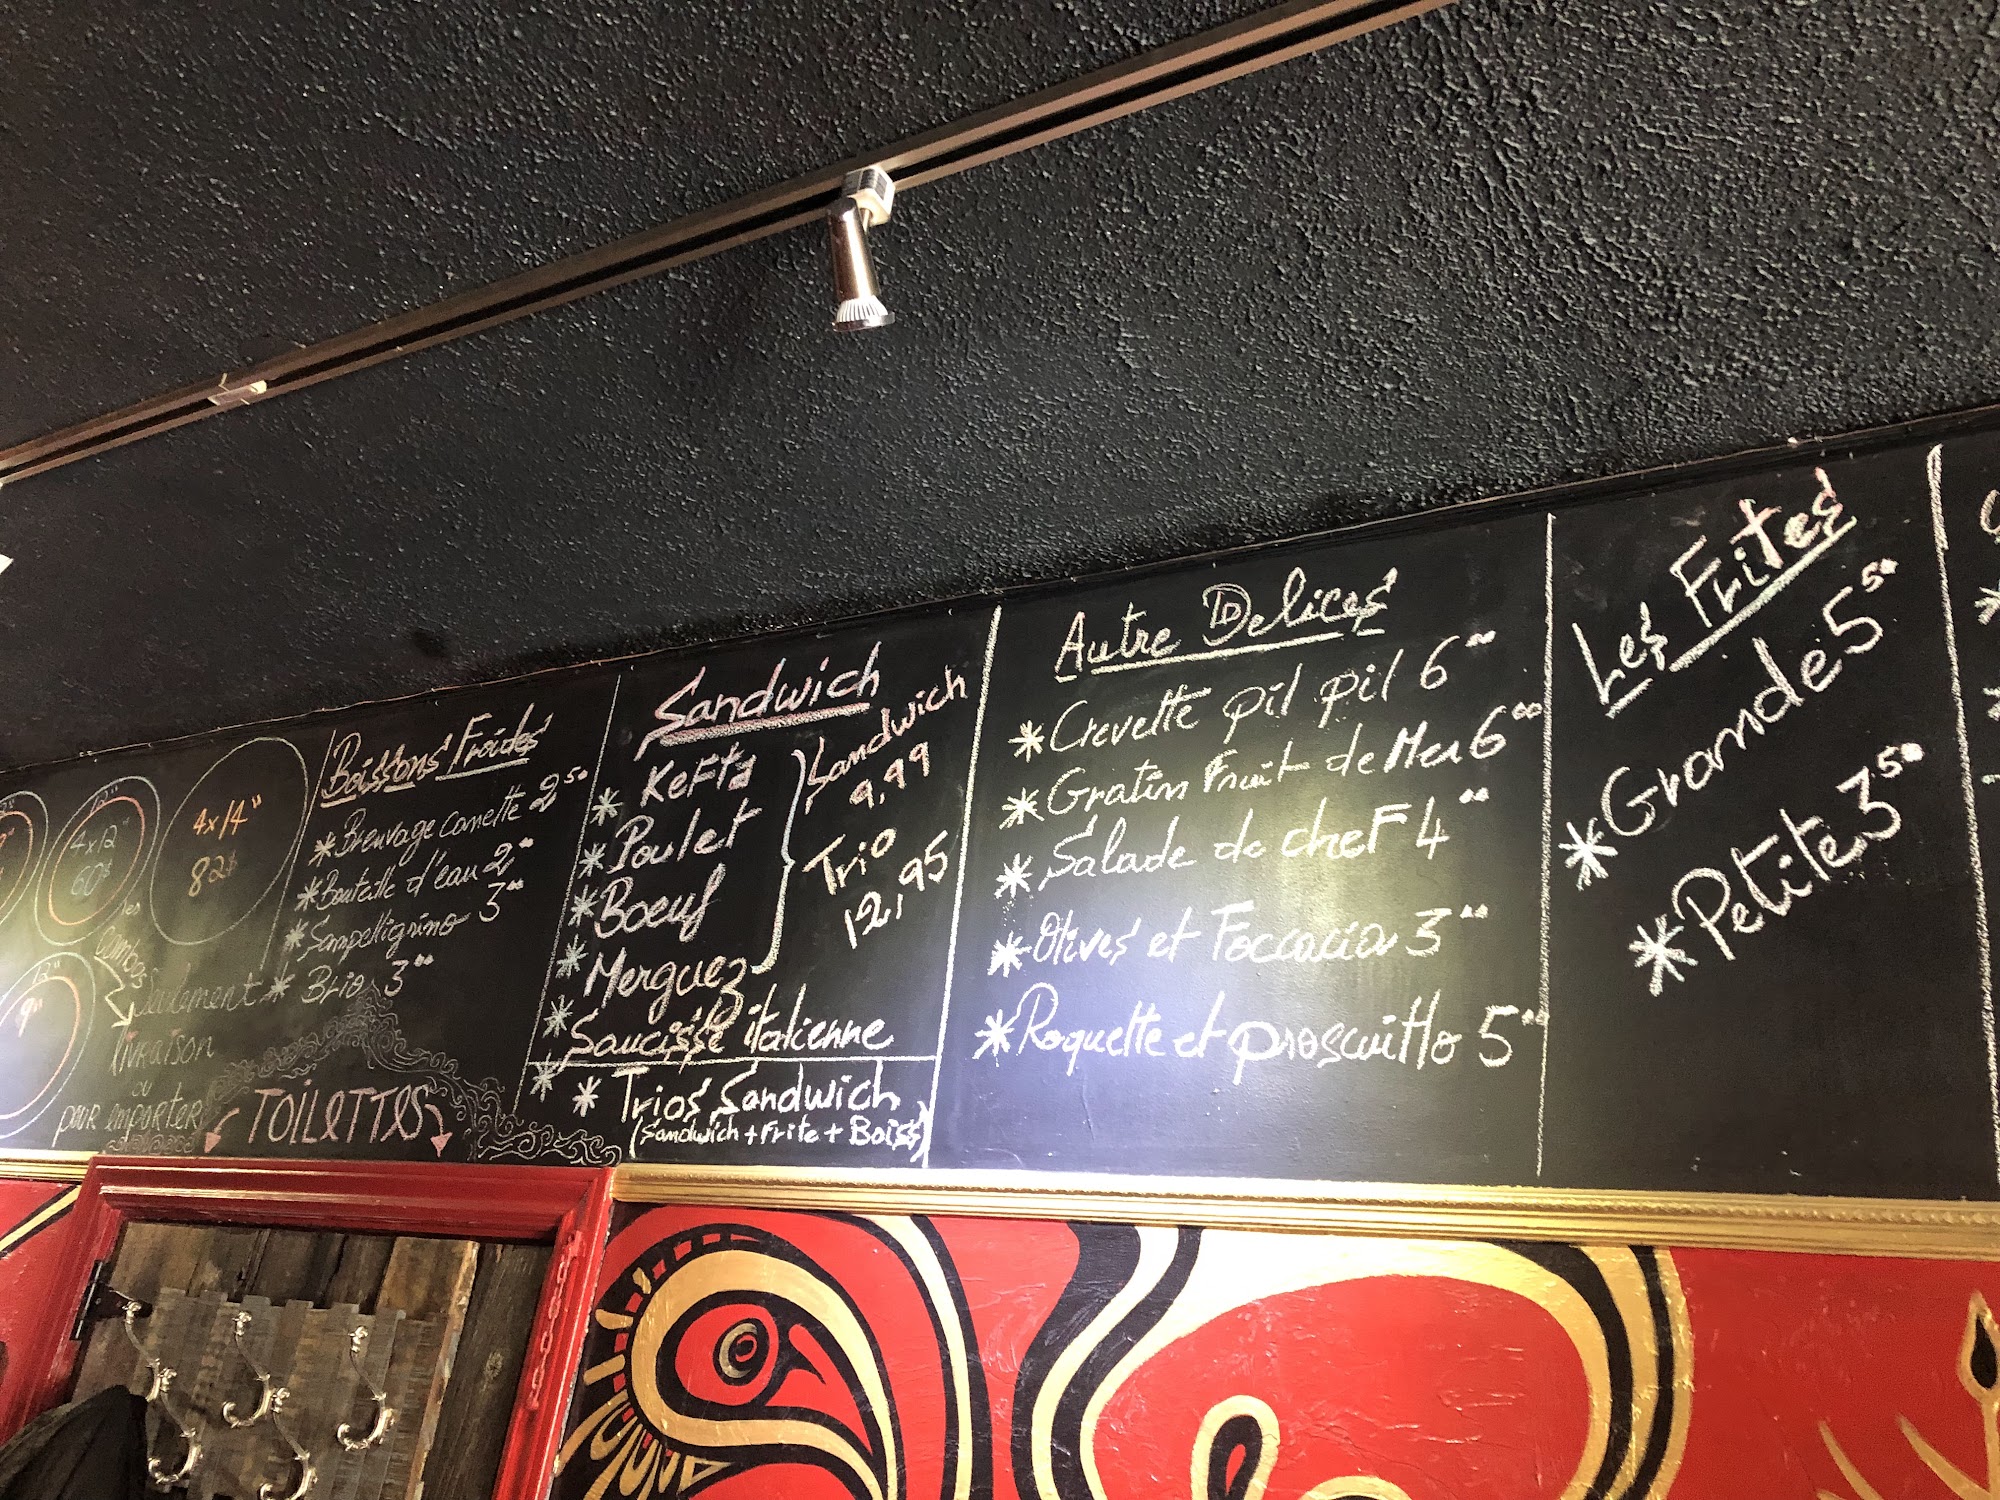 4x12"
60$
4x14"
82$
12"
9"
les
combos
seulement
livraison
ou
pour emporter
Boissons Froides
* Breuvage canette 2.50
* Bouteille d'eau 2.00
* Sampellignino 3.00
* Brio 3.00
TOILETTES
Sandwich
* Kefta
* Poulet
* Boeuf
* Merguez
* Saucisse italienne
Sandwich
9,99
Trio
12,95
* Trios Sandwich
(Sandwich + Frite + Boiss)
Autre Delices
* Crevette pil pil 6.00
* Gratin Fruit de Mer 6.00
* Salade de cheF 4.00
* Olives et Foccacia 3.00
* Roquette et proscuitto 5.00
Les Frites
* Grande 5.50
* Petite 3.50